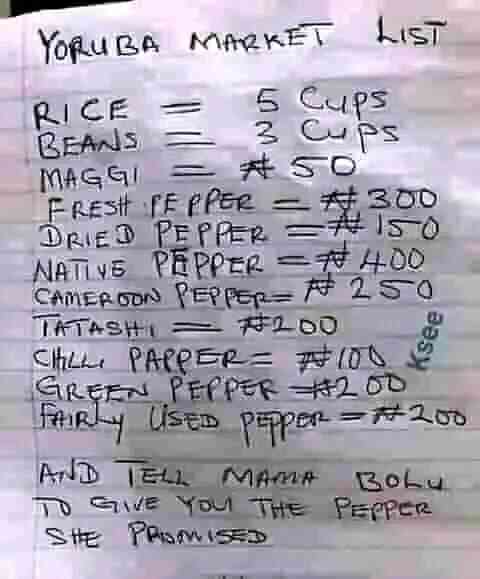 YORUBA MARKET LIST
RICE = 5 Cups
BEANS = 3 Cups
MAGGI = ₦ 50
FRESH PEPPER = ₦ 300
DRIED PEPPER = ₦ 150
NATIVE PEPPER = ₦ 400
CAMEROON PEPPER = ₦ 250
TATASHI = ₦200
CHILLI PAPPER = ₦100
GREEN PEPPER = ₦200
FAIRLY USED PEPPER = ₦200
Ksee
AND TELL MAMA BOLU
TO GIVE YOU THE PEPPER
SHE PROMISED